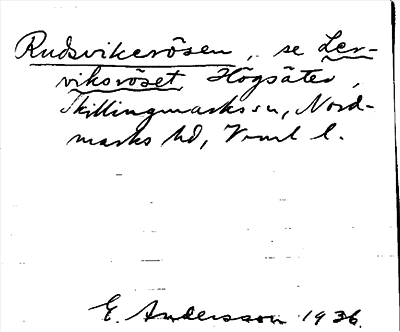 Rudsvikerösen, se Ler-
viksröset, Högsäter,
Skillingmarks sn, Nord-
marks hd, Vrml l.
E. Andersson 1936.